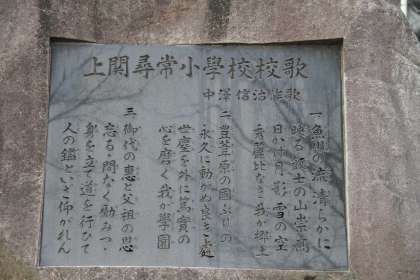 上關尋常小學校校歌
中澤信治作歌
一 魚野の流 清らかに
映る
日か月か影 雪の空
秀麗比なき 我が郷土
二 豊葦原の國ぶりの
永久に動かぬ良き
世塵を外に篤實の
心を磨く我が學園
三 御代の恵と父祖の恩
忘るゝ間なく勵みつゝ
身を立て道を行ひて
人の鑑といざ仰がれん